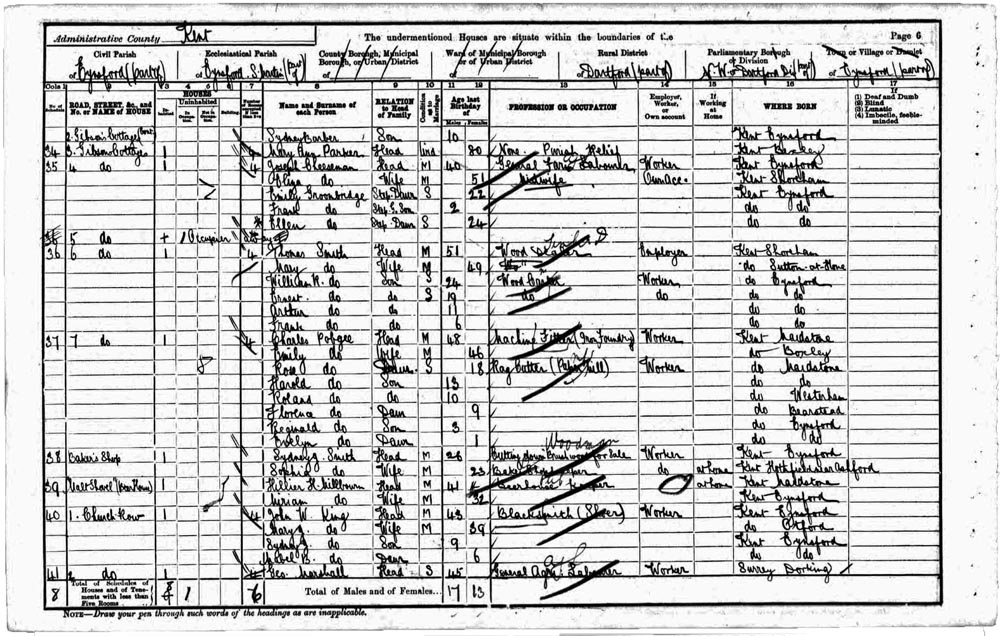 Administrative County Kent The undermentioned Houses are situate within the boundaries of the Page 6
Civil Parish Ecclesiastical Parish County Borough, Municipal Borough, or Urban District Ward of Municipal Borough or of Urban District Rural District Parliamentary Borough or Division Town or Village or Hamlet
of Eynsford (part of) of Eynsford S. Martin (part of) of of of Dartford (part of) of N.W. Dartford Div (part of) of Eynsford (part of)
Cols 1 2 3 4 5 6 7 8 9 10 11 12 13 14 15 16 17
ROAD, STREET, &c., and No. or NAME of HOUSE HOUSES Uninhabited Name and Surname of each Person RELATION to Head of Family Condition as to Marriage Age last Birthday of Males Females PROFESSION OR OCCUPATION Employer, Worker, or Own account If Working at Home WHERE BORN (1) Deaf and Dumb (2) Blind (3) Lunatic (4) Imbecile, feeble-minded
2. Gibson Cottages (cont) Sydney Barber Son 10 Kent Eynsford
34 3. Gibson Cottage 1 4 Mary Ann Parker Head Wid 80 None Parish Relief Kent Bexley
35 4 do 1 4 Joseph Cheesman Head M 40 General Farm Labourer Worker Kent Eynsford
Eliza do Wife M 51 Midwife Own Acc. Kent Shoreham
Emily Groombridge Step Daur S 22 Kent Eynsford
Frank do Step G. Son 2 do do
Ellen do Step Daur S 24 do do
5 do 1 Occupier
36 6 do 1 4 Thomas Smith Head M 51 Wood Dealer Employer Kent Shoreham
Mary do Wife M 49 do Sutton-at-Hone
William H. do Son S 24 Wood Worker do Eynsford
Ernest do do S 19 do do do do
Arthur do do 11 do do
Frank do do 6 do do
37 7 do 1 4 Charles Pobgee Head M 48 Machine Fitter (Iron Foundry) Worker Kent Maidstone
Emily do Wife M 46 do Boxley
Rose do Daur S 18 Rag Cutter (Paper Mill) Worker do Maidstone
Harold do Son 13 do do
Roland do do 10 do Westerham
Florence do Daur 9 do Bearstead
Reginald do Son 3 do Eynsford
Evelyn do Daur 1 do do
38 Baker's Shop 1 Sydney Smith Head M 26 Cutting down Brushwood for Sale Woodman Worker Kent Eynsford
Sophia do Wife M 23 Baker Shopkeeper do at home Kent Hothfield near Ashford
39 Malt Shovel (Beer House) 1 Hillier H. Millbourn Head M 41 Beerhouse Keeper at home Kent Maidstone
Miriam do Wife M 32 Kent Eynsford
40 1. Church Row 1 4 John W. King Head M 43 Blacksmith (Shoer) Worker Kent Eynsford
Mary J. do Wife M 39 do Otford
Sydney do Son 9 Kent Eynsford
Mabel B. do Daur 6 do do
41 2 do 1 4 Geo. Marshall Head S 45 General Agri. Labourer Worker Surrey Dorking
8 Total of Schedules of Houses and of Tenements with less than Five Rooms 8 1 6 Total of Males and of Females... 17 13
NOTE—Draw your pen through such words of the headings as are inapplicable.